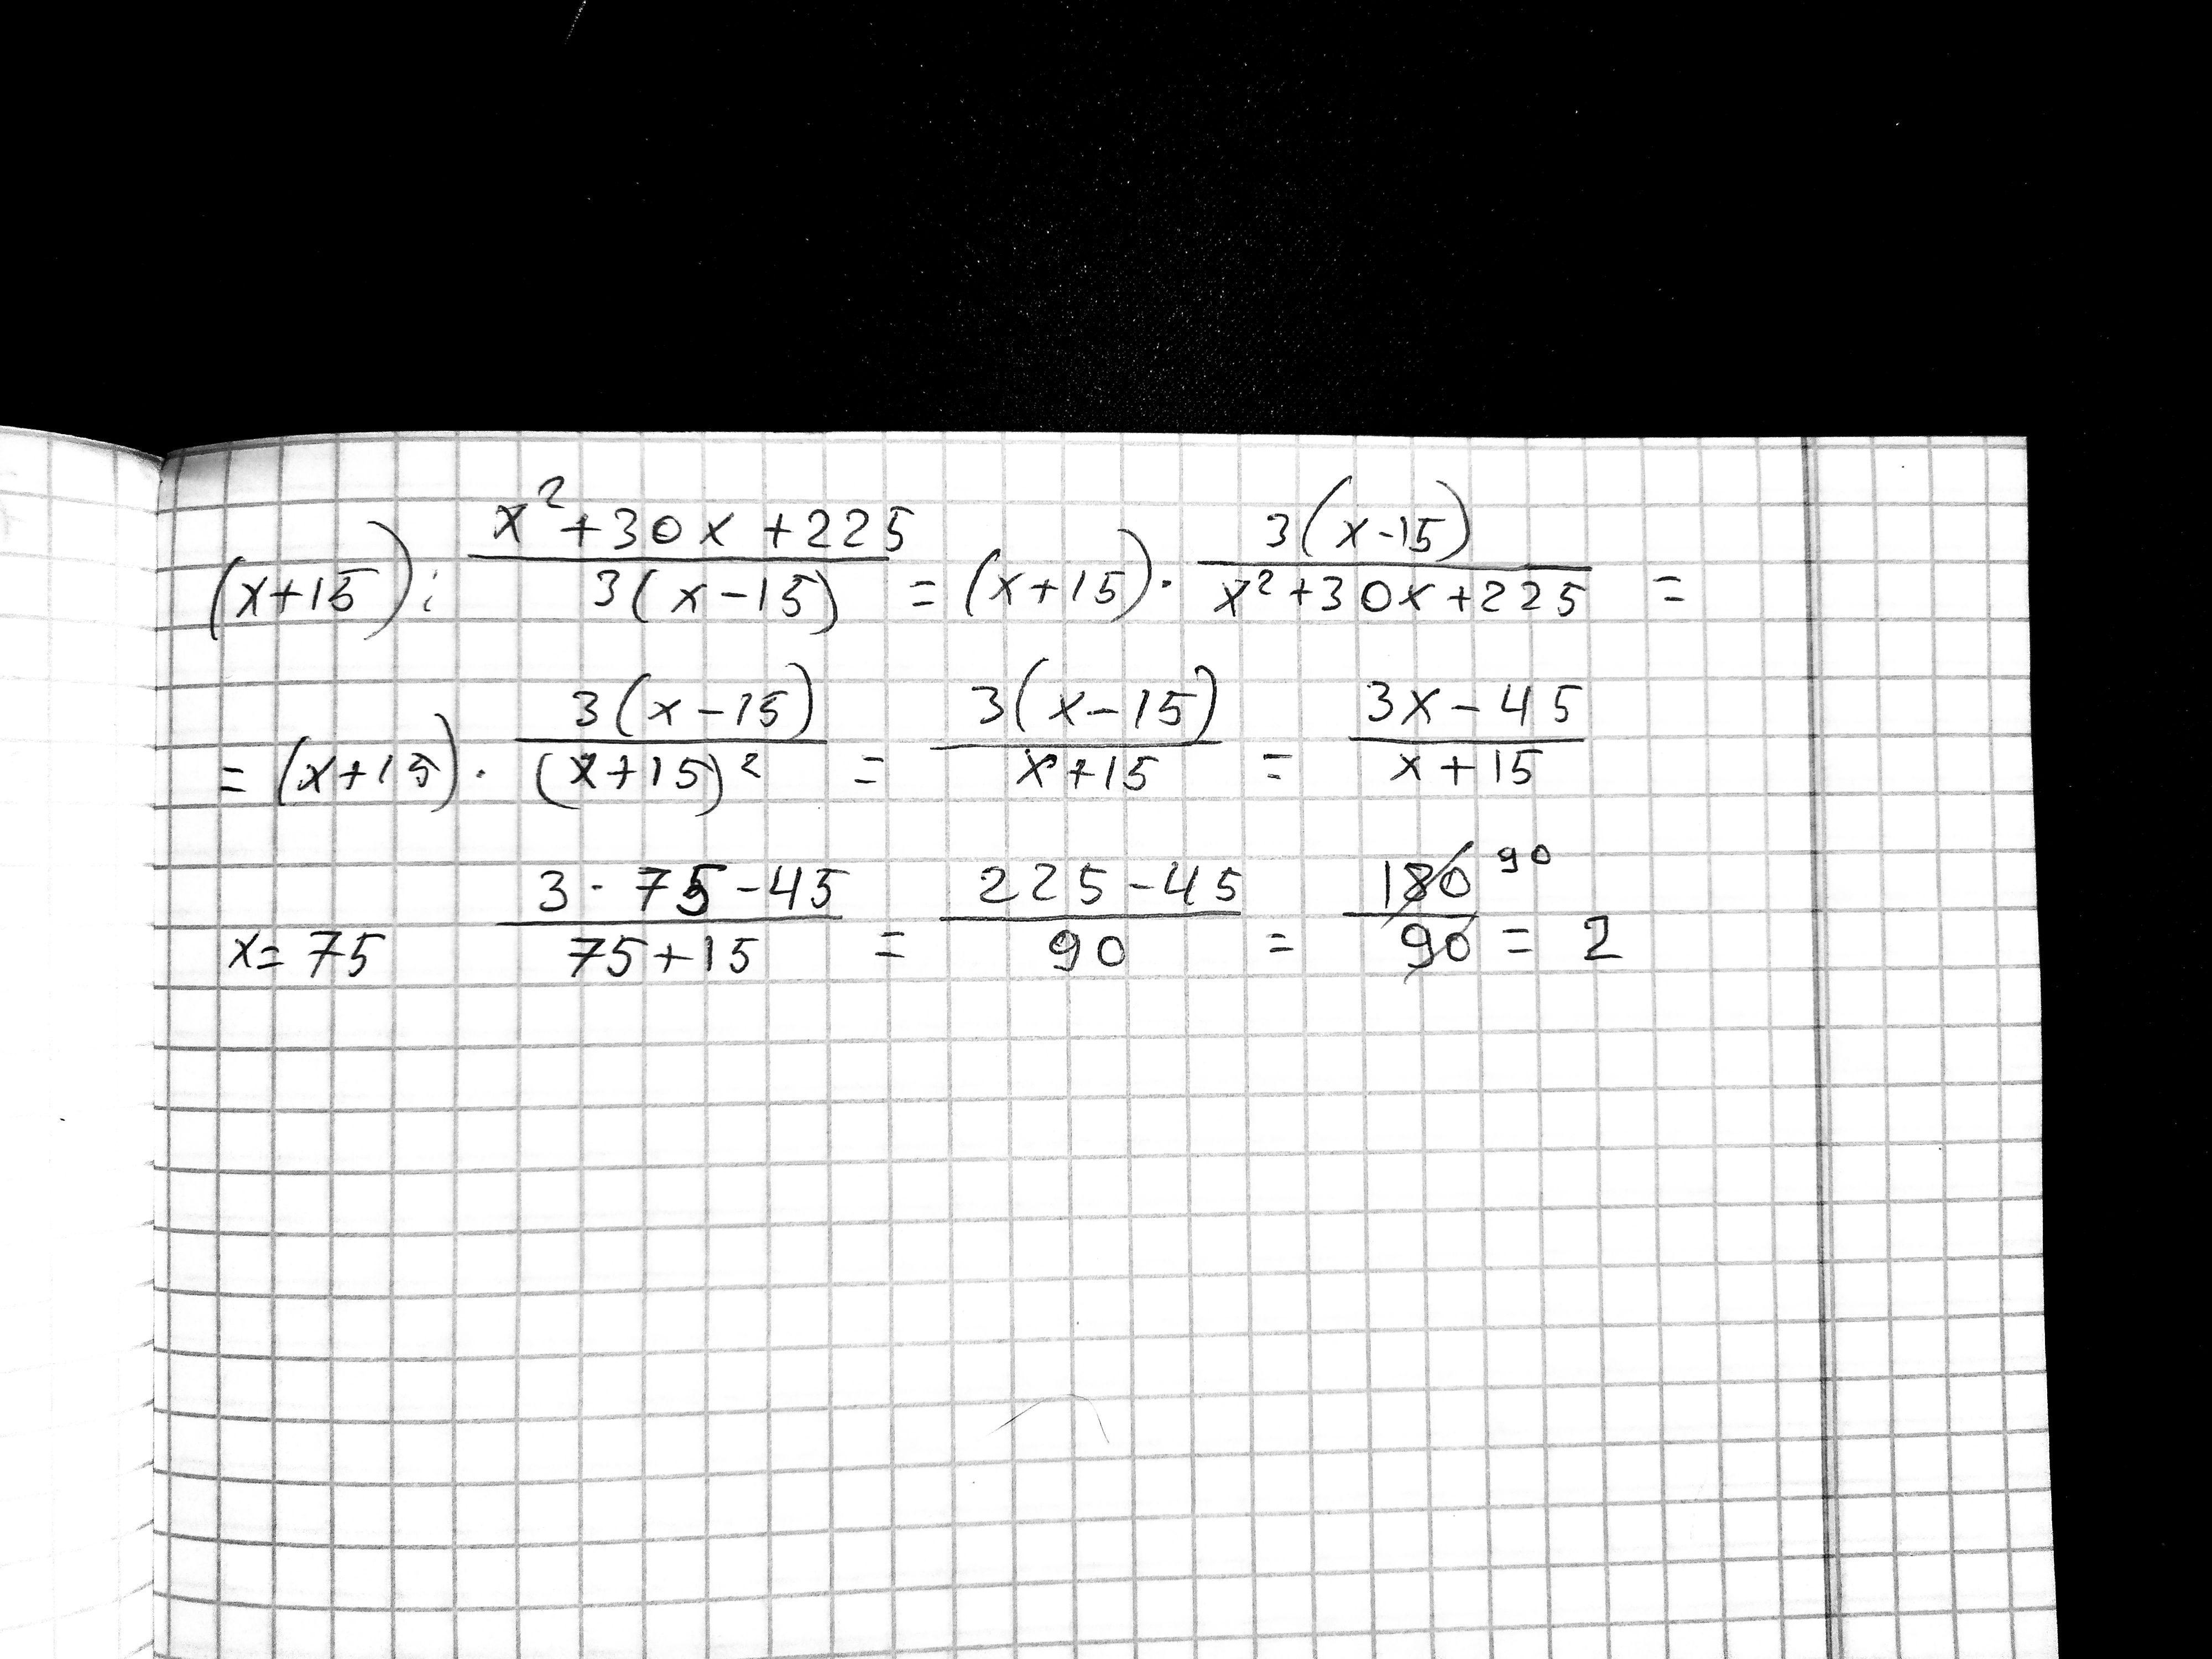 (x+15) : x²+30x+225 / 3(x-15) = (x+15) · 3(x-15) / x²+30x+225 =
= (x+15) · 3(x-15) / (x+15)² = 3(x-15) / x+15 = 3x-45 / x+15
x=75 3·75-45 / 75+15 = 225-45 / 90 = 180 90 / 90 = 2